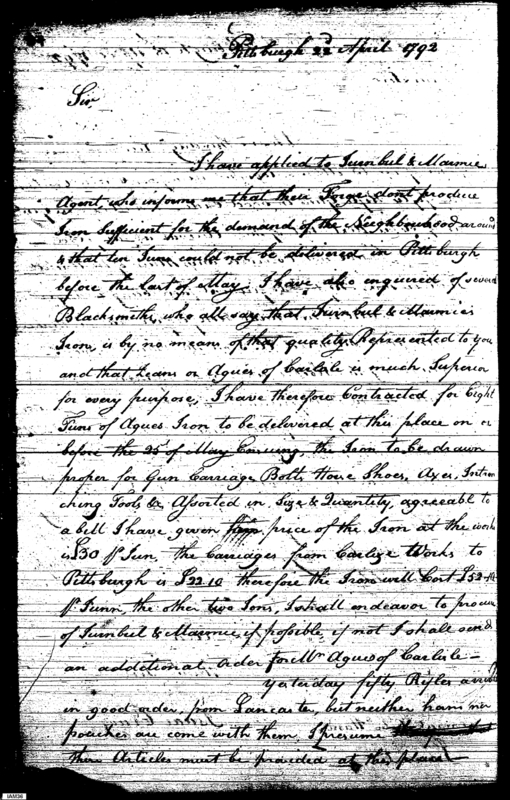 Pittsburgh 22d April 1792
Sir
I have applied to Turnbul & Marmie
Agent who informs me that their Forge dont produce
Iron sufficient for the demand of the Neighbourhood around
& that ten Tuns could not be delivered in Pittsburgh
before the last of May. I have also enquired of several
Blacksmiths, who all say that Turnbul & Marmies
Iron, is by no means of that quality Represented to you
and that Leans or Agues of Carlisle is much Superior
for every purpose, I have therefore Contracted for Eight
Tuns of Agues Iron to be delivered at this place on or
before the 25 of May Ensuing, the Iron to be drawn
proper for Gun Carriage Bolts Horse Shoes, Axes, Intren
ching Tools & Assorted in Size & Quantity, agreeable to
a bill I have given price of the Iron at the works
is £30 pr Tun, the Carriages from Carlize Works to
Pittsburgh is £22.10 therefore the Iron will Cost £52-10
pr Tunn, the other two Tons, I shall endeavor to procure
of Turnbul & Marmie, if possible, if not I shall send
an additional order for Mr Agues of Carlisle —
Yesterday fifty Rifles arrived
in good order, from Lancaster, but neither horns nor
pouches are come with them, I presume
these Articles must be provided at this place
IAM36